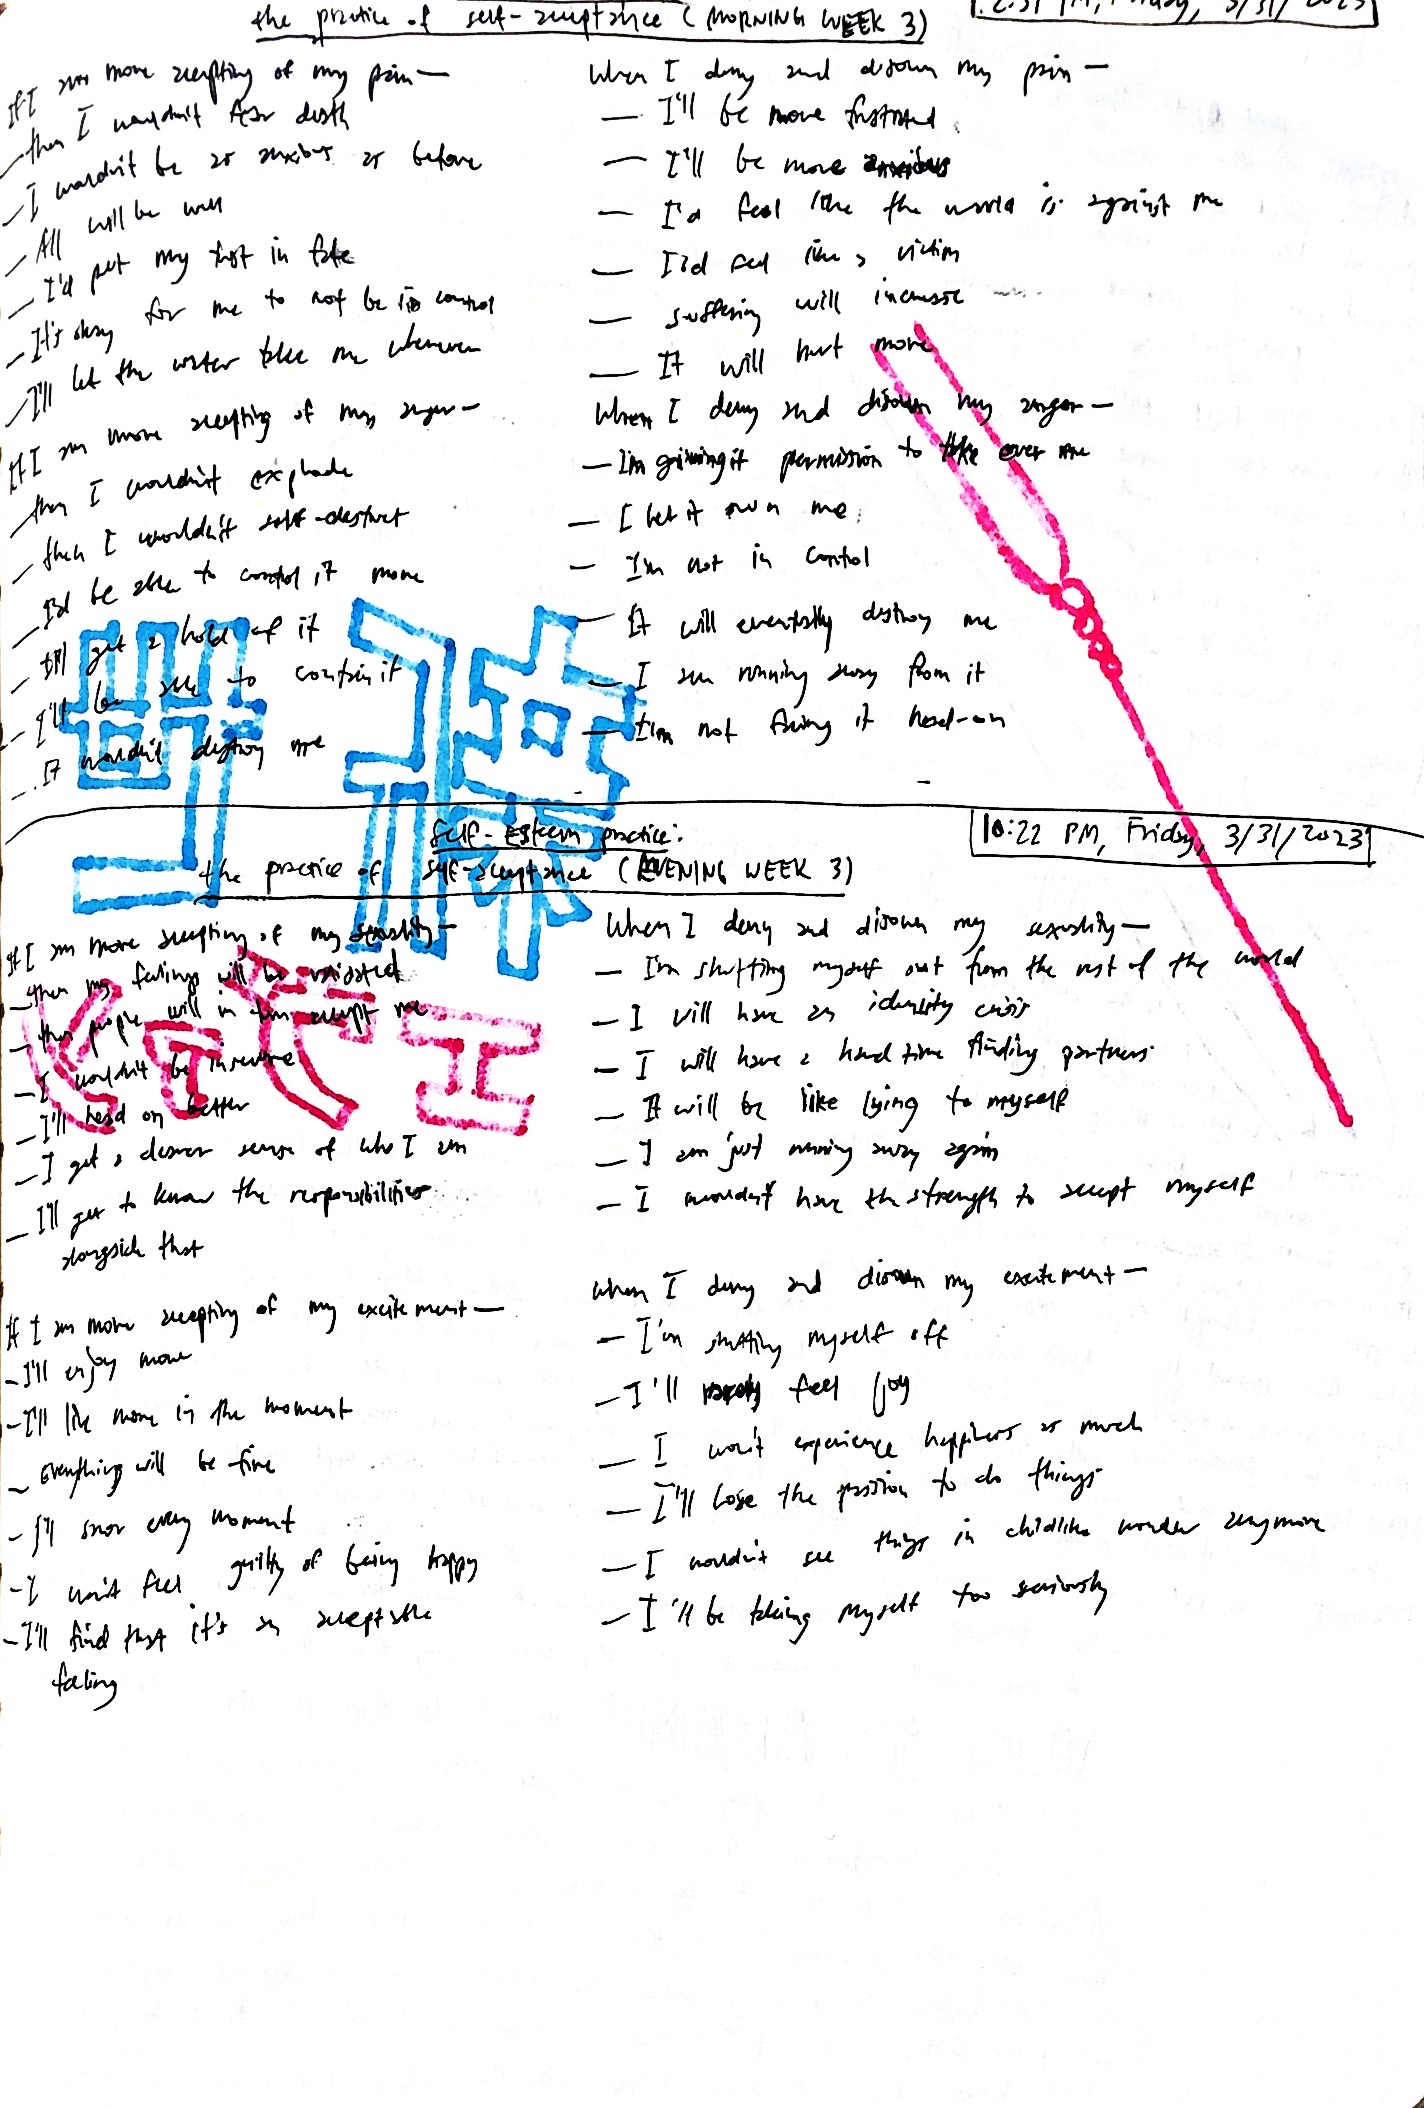 the practice of self-acceptance (MORNING WEEK 3)
PM, Friday, 3/31/2023
If I am more accepting of my pain—
— then I wouldn't fear death
— I wouldn't be as anxious as before
— All will be well
— I'd put my trust in fate
— It's okay for me to not be in control
— I'll let the water take me wherever
If I am more accepting of my anger—
— then I wouldn't explode
— then I wouldn't self-destruct
— I'd be able to control it more
— I'll get a hold of it
— I'll be able to contain it
— It wouldn't destroy me
When I deny and disown my pain —
— I'll be more frustrated
— I'll be more anxious
— I'd feel like the world is against me
— I'd feel like a victim
— suffering will increase
— It will hurt more
When I deny and disown my anger —
— I'm giving it permission to take over me
— I let it own me
— I'm not in control
— It will eventually destroy me
— I am running away from it
— I'm not facing it head-on
self-esteem practice:
the practice of self-acceptance (EVENING WEEK 3)
10:22 PM, Friday, 3/31/2023
If I am more accepting of my sexuality—
— then my feelings will be validated
— then people will in turn accept me
— I wouldn't be insecure
— I'll head on better
— I get a clearer sense of who I am
— I'll get to know the responsibilities
alongside that
If I am more accepting of my excitement —
— I'll enjoy more
— I'll live more in the moment
— everything will be fine
— I'll savor every moment
— I won't feel guilty of being happy
— I'll find that it's an acceptable
feeling
When I deny and disown my sexuality —
— I'm shutting myself out from the rest of the world
— I will have an identity crisis
— I will have a hard time finding partners
— It will be like lying to myself
— I am just running away again
— I wouldn't have the strength to accept myself
When I deny and disown my excitement —
— I'm shutting myself off
— I'll rarely feel joy
— I won't experience happiness as much
— I'll lose the passion to do things
— I wouldn't see things in childlike wonder anymore
— I'll be taking myself too seriously